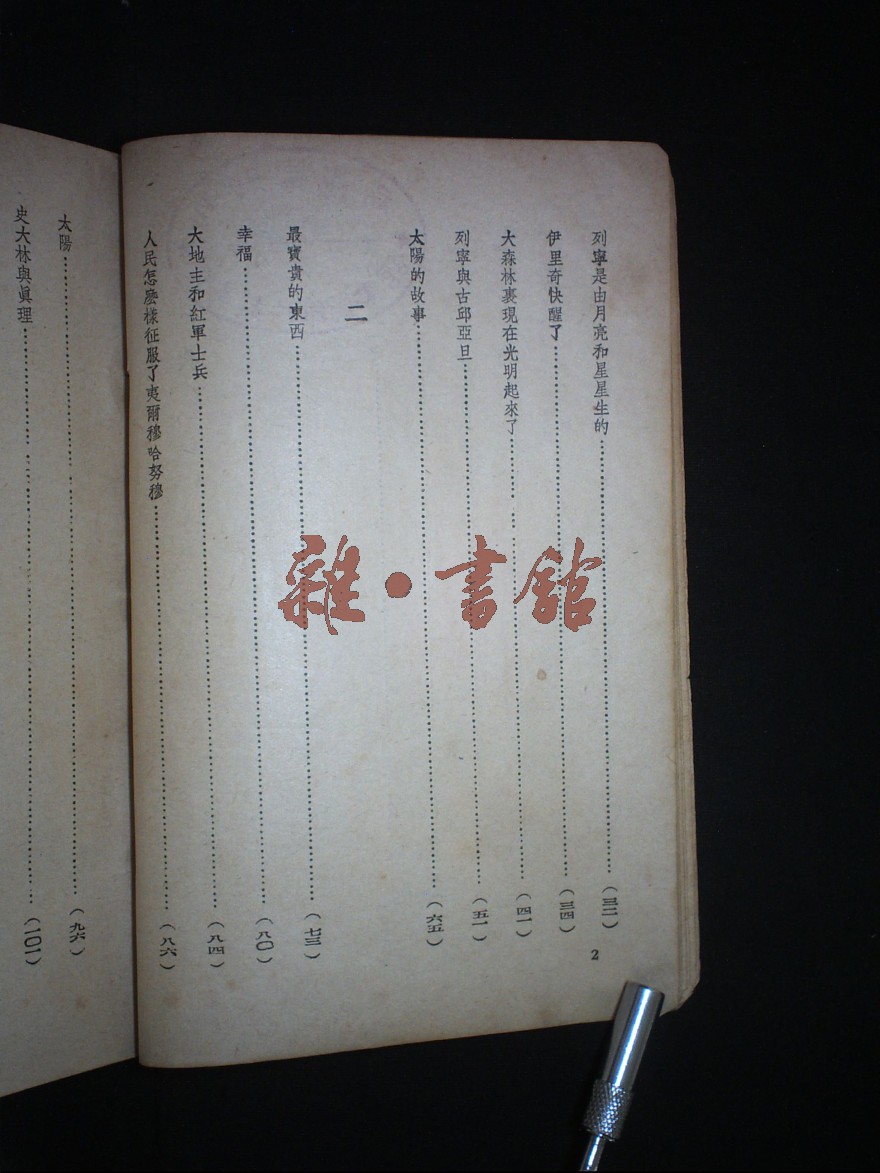 列寧是由月亮和星星生的………(三二)
伊里奇快醒了………(三四)
大森林裏現在光明起來了………(四一)
列寧與古邱亞旦………(五一)
太陽的故事………(六五)
二
最寶貴的東西………(七三)
幸福………(八〇)
大地主和紅軍士兵………(八四)
人民怎麽樣征服了夷爾穆哈努穆………(八六)
2
太陽………(九六)
史大林與眞理………(一〇一)
雜·書館